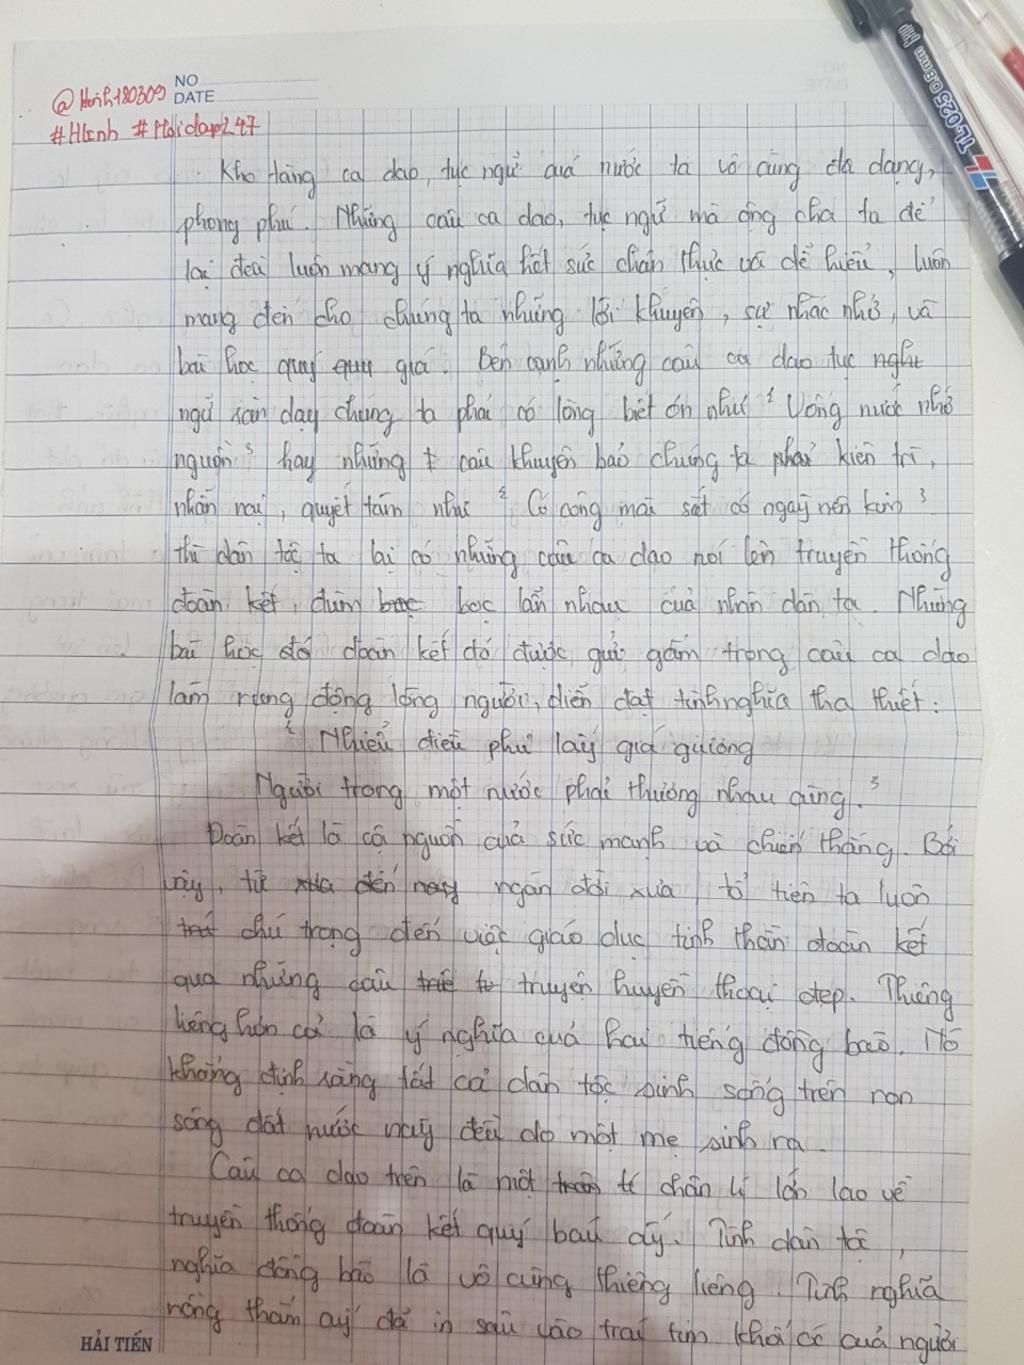 NO
@Hinh180309 DATE
#HLinh #Hoidap247
Kho tàng ca dao, tục ngữ quả nước ta vô cùng đa dạng,
phong phú. Những câu ca dao, tục ngữ mà ông cha ta để
lại đều luôn mang ý nghĩa hết sức chân thực và dễ hiểu, luôn
mang đến cho chúng ta những lời khuyên, sự nhắc nhở, và
bài học quý quy giá. Bên cạnh những câu ca dao tục nghư
ngữ răn dạy chúng ta phải có lòng biết ơn như "Uống nước nhớ
nguồn" hay những t câu khuyên bảo chúng ta phải kiên trì,
nhẫn nại, quyết tâm như "Có công mài sắt có ngày nên kim"
thì dân tộc ta lại có những câu ca dao nói lên truyền thống
đoàn kết, đùm bọc bọc lẫn nhau của nhân dân ta. Những
bài học đó đoàn kết đó được gửi gắm trong câu ca dao
làm rung động lòng người, diễn đạt tình nghĩa tha thiết:
"Nhiễu điều phủ lấy giá gương
Người trong một nước phải thương nhau cùng."
Đoàn kết là cội nguồn của sức mạnh và chiến thắng. Bởi
vậy, từ xưa đến nay ngàn đời xưa, tổ tiên ta luôn
trú chú trọng đến việc giáo dục tinh thần đoàn kết
qua những câu truyện huyền thoại đẹp. Thiêng
liêng hơn cả là ý nghĩa quả hai tiếng đồng bào. Nó
khẳng định rằng tất cả dân tộc sinh sống trên non
sông đất nước này đều do một mẹ sinh ra.
Câu ca dao trên là một chân lí lớn lao về
truyền thống đoàn kết quý báu ấy. Tình dân tộc,
nghĩa đồng bào là vô cùng thiêng liêng. Tình nghĩa
nồng thắm ấy đã in sâu vào trái tim khối óc quả người
HẢI TIẾN
TL-025 0.8mm